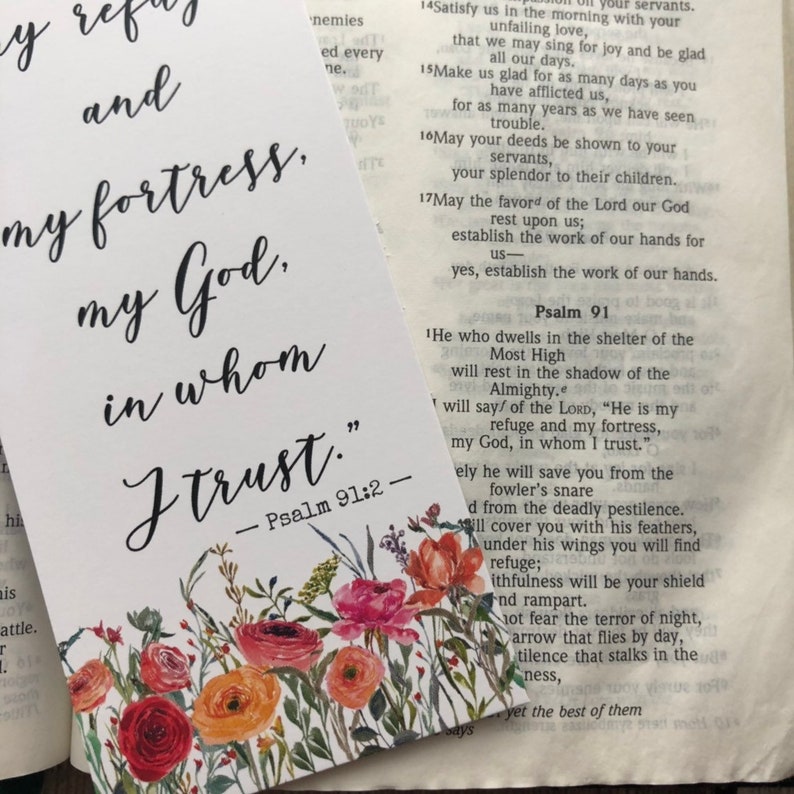 my refug
and
my fortress,
my God,
in whom
I trust.”
— Psalm 91:2 —
enemies
ed every
ne.
his
his
attle.
r
l.
on your servants.
14Satisfy us in the morning with your
unfailing love,
that we may sing for joy and be glad
all our days.
15Make us glad for as many days as you
have afflicted us,
for as many years as we have seen
trouble.
16May your deeds be shown to your
servants,
your splendor to their children.
17May the favord of the Lord our God
rest upon us;
establish the work of our hands for
us—
yes, establish the work of our hands.
Psalm 91
1He who dwells in the shelter of the
Most High
will rest in the shadow of the
Almighty.e
I will sayf of the LORD, “He is my
refuge and my fortress,
my God, in whom I trust.”
ely he will save you from the
fowler’s snare
d from the deadly pestilence.
will cover you with his feathers,
under his wings you will find
refuge;
ithfulness will be your shield
nd rampart.
not fear the terror of night,
arrow that flies by day,
tilence that stalks in the
ness,
yet the best of them
says